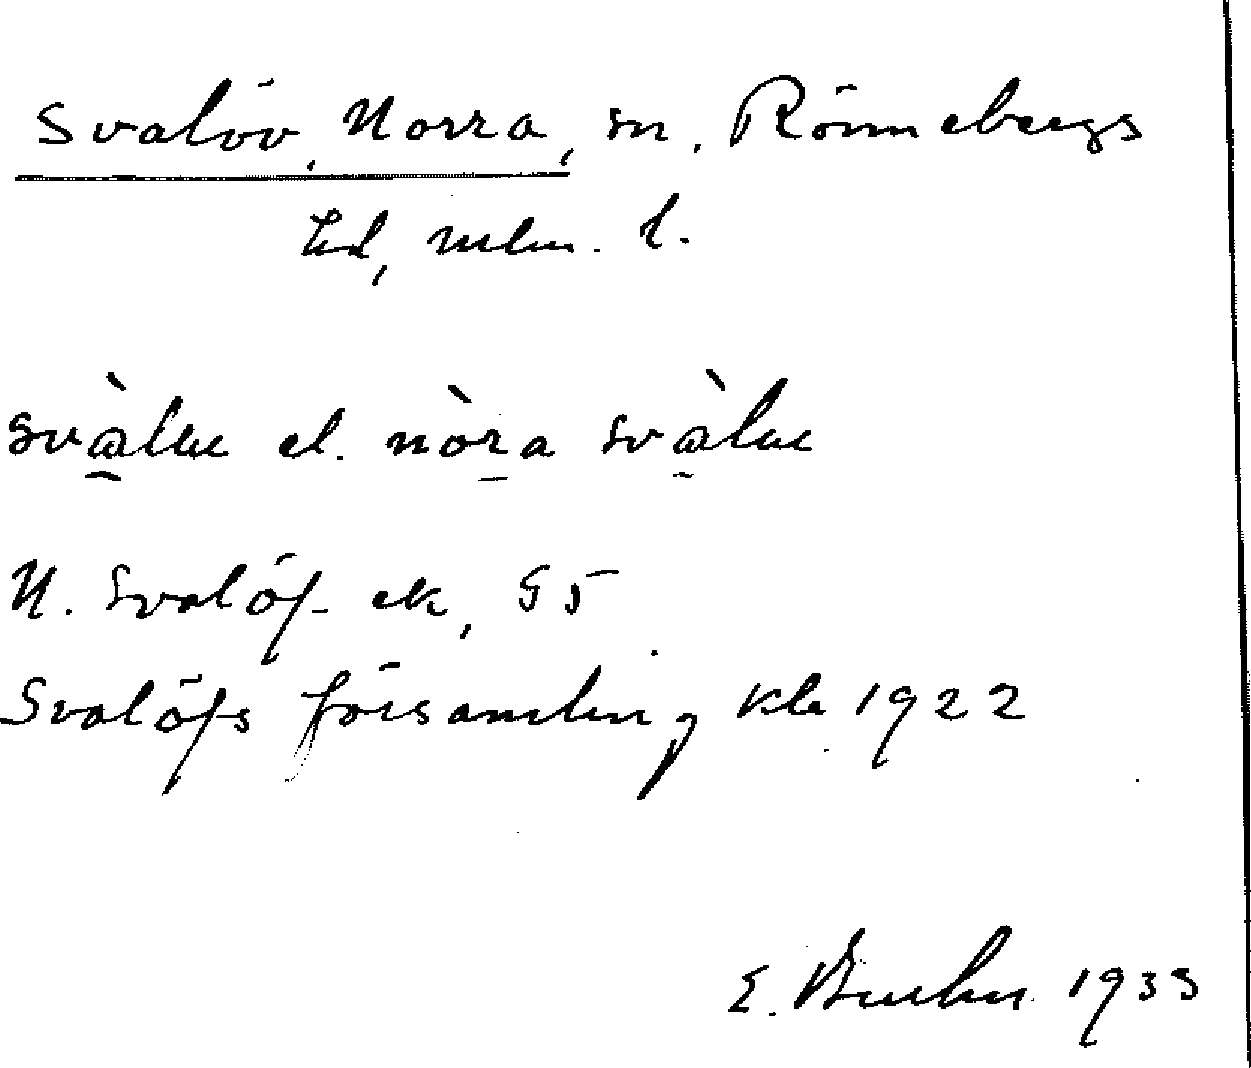 Svalöv, Norra, sn, Rönnebergs
hd, mlm. l.
svàlue el. nòra svàlue
N. Svalöf ek, G5
Svalöfs församling kla 1922
E. Bruhn 1933